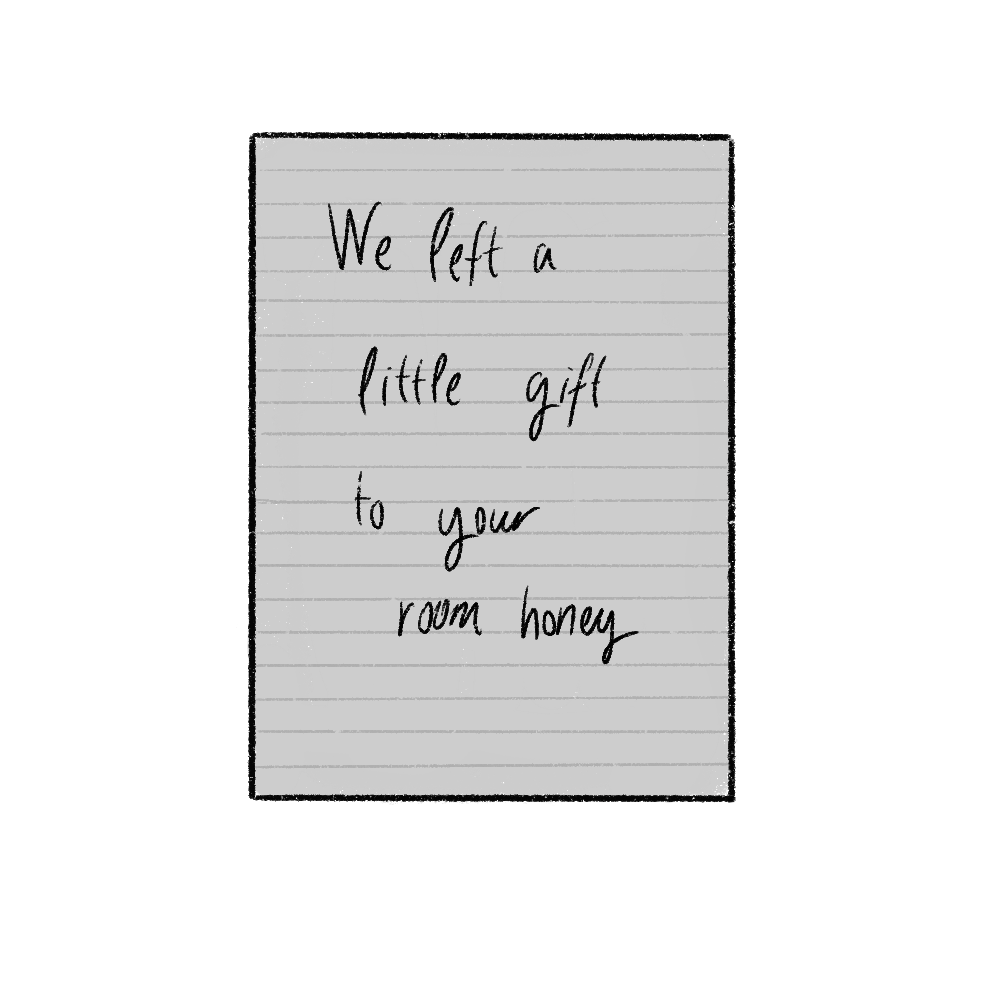 We left a
little gift
to your
room honey